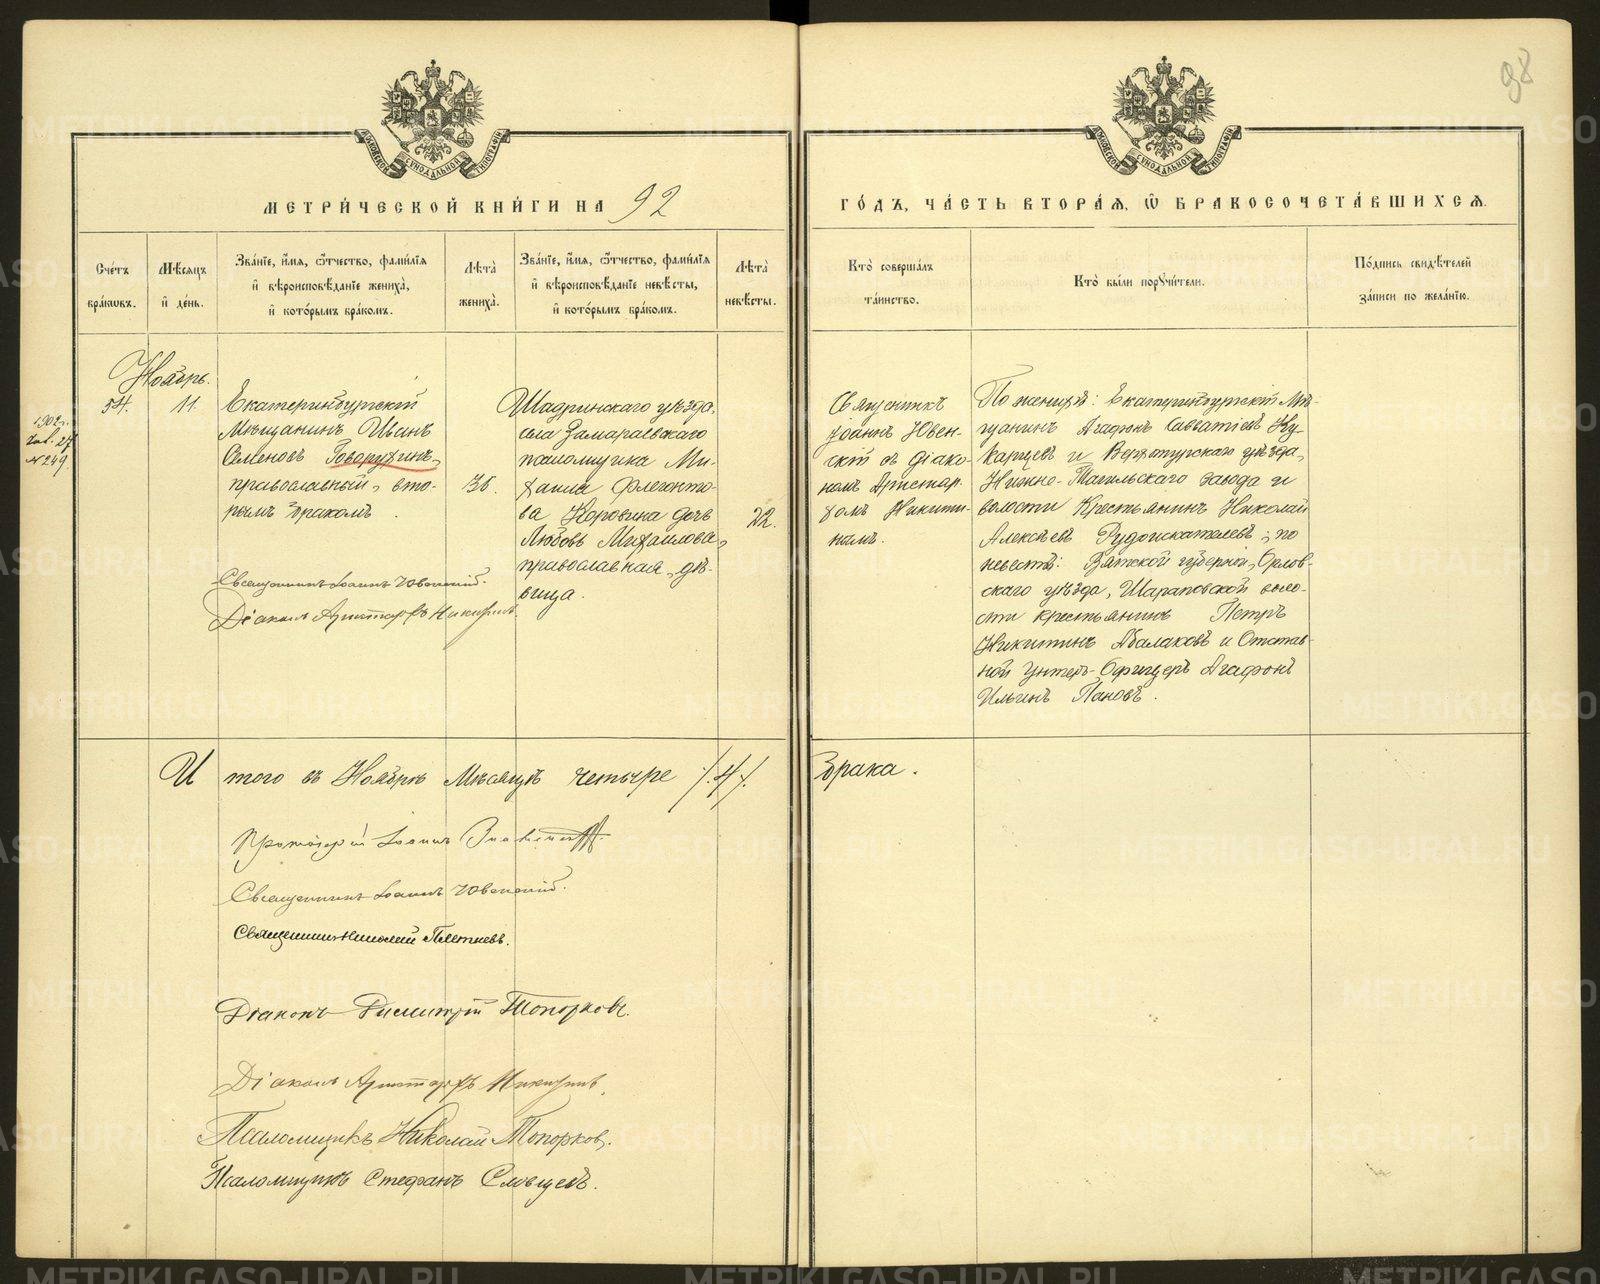 98
МОСКОВСКОЙ СѴНОДАЛЬНОЙ ТИПОГРАФІИ
МОСКОВСКОЙ СѴНОДАЛЬНОЙ ТИПОГРАФІИ
МЕТРИ́ЧЕСКОЙ КНИ́ГИ НА 92
ГО́ДЪ, ЧА́СТЬ ВТОРА́Я, Ѽ БРАКОСОЧЕТА́ВШИХСЯ.
Сче́тъ
бра́кѡвъ.
Мѣ́сяцъ
и҆ де́нь.
Зва́нїе, и҆́мя, ѻ҆́тчество, фами́лїя
и҆ вѣроисповѣ́данїе жениха̀,
и҆ кото́рымъ бра́комъ.
Лѣ́та
жениха̀.
Зва́нїе, и҆́мя, ѻ҆́тчество, фами́лїя
и҆ вѣроисповѣ́данїе невѣ́сты,
и҆ кото́рымъ бра́комъ.
Лѣ́та
невѣ́сты.
Кто̀ соверша́лъ
та́инство.
Кто̀ бы́ли порꙋчи́тели.
По́дпись свидѣ́телей
за́писи по жела́нїю.
Ноябрь.
1902 г.
27
№ 249
54.
11.
Екатеринбургскій
Мѣщанинъ Иванъ
Семеновъ Говорухинъ,
православный, вто-
рымъ бракомъ.
36.
Священникъ Іоаннъ Ювенскій.
Діаконъ Аристархъ Никитинъ.
Шадринскаго уѣзда,
села Замараевскаго
псаломщика Ми-
хаила Флегонто-
ва Коровина дочь
Любовь Михаилова,
православная, дѣ-
вица.
22.
Священникъ
Іоаннъ Ювен-
скій съ діако-
номъ Аристар-
хомъ Никити-
нымъ.
По женихѣ: Екатеринбургскій Мѣ-
щанинъ Агафонъ Савватіевъ Ку-
карцевъ и Верхотурскаго уѣзда,
Нижне-Тагильскаго завода и
волости Крестьянинъ Николай
Алексѣевъ Рудоискателевъ; по
невѣстѣ: Вятской губерніи, Орлов-
скаго уѣзда, Шараповской воло-
сти крестьянинъ Петръ
Никитинъ Абалаковъ и Отстав-
ной Унтеръ-Офицеръ Агафонъ
Ильинъ Пановъ.
Итого въ Ноябрѣ Мѣсяцѣ четыре /4/. брака.
Протоіерей Іоаннъ
Священникъ Іоаннъ Ювенскій.
Священникъ Николай Плетневъ.
Діаконъ Димитрій Топорковъ.
Діаконъ Аристархъ Никитинъ.
Псаломщикъ Николай Топорковъ.
Псаломщикъ Стефанъ Словцевъ.
METRIKI.GASO-URAL.RU